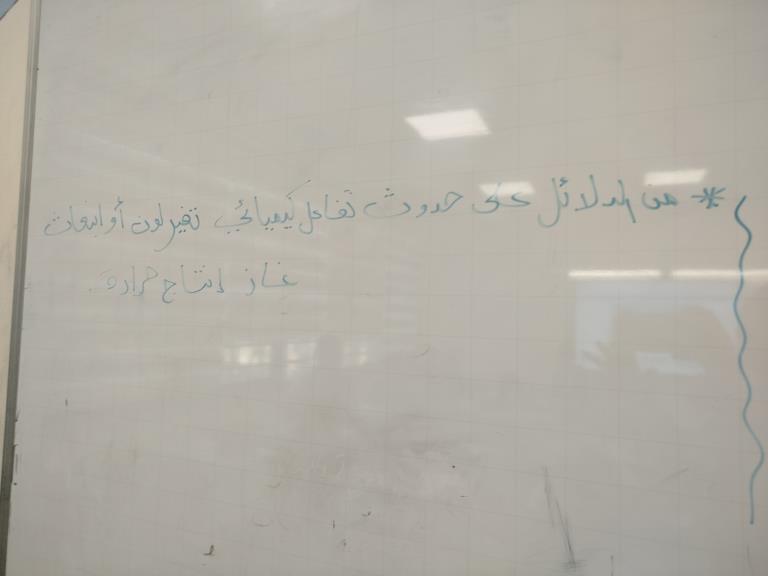 * من الدلائل على حدوث تفاعل كيميائي تغير لون أو انبعاث
غاز إنتاج حرارة